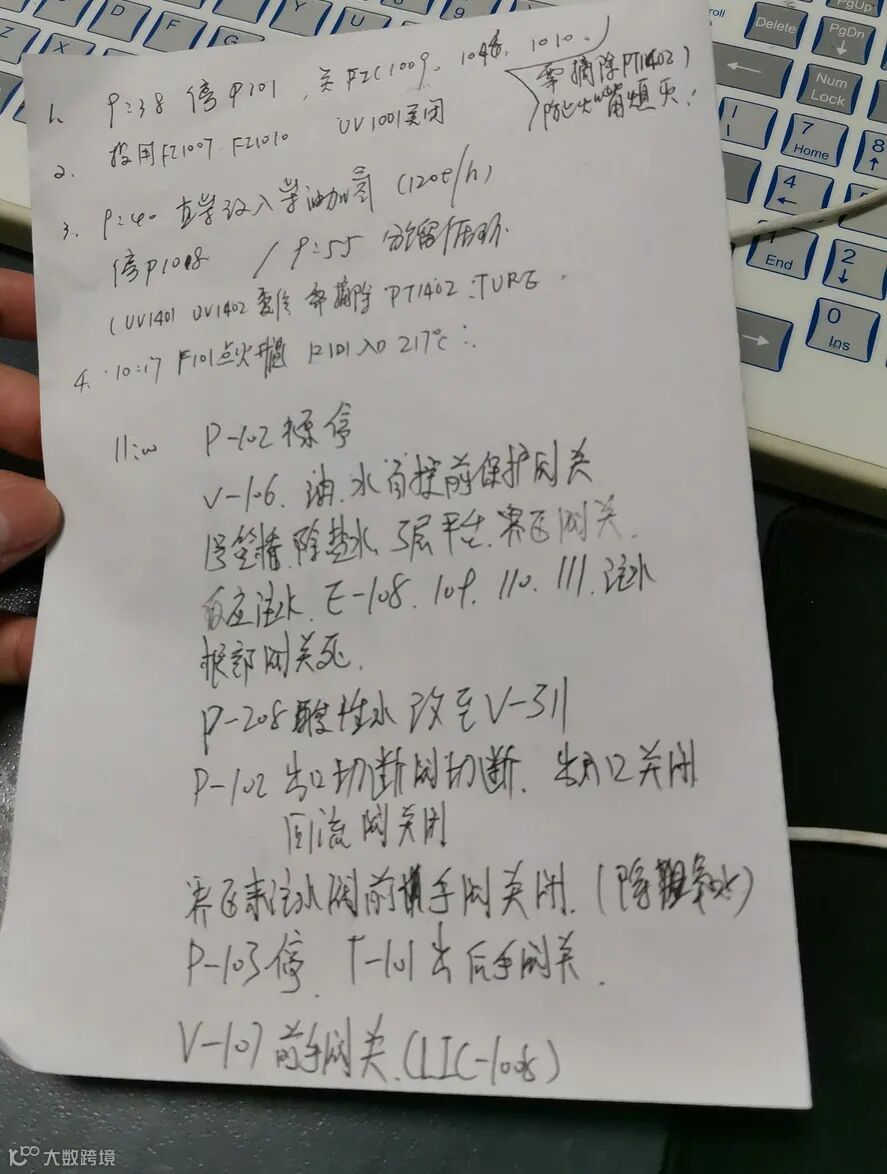 1. 9:38 停P101，关FZC1009、1010.
需摘除PT1402)
防止火嘴熄灭!
2. 投用FZ1007 FZ1010 UV1001关闭
3. 9:40 直柴改入柴油加氢 (120t/h)
停P1018 / 9:55 分馏循环
(UV1401 UV1402 需摘除 PT1402:TURE.
4. 10:17 F101点火升温 R101入口 217℃
11:00 P-102 停
V-106. 油.水 前保护阀关
除盐水 5层平台. 界区阀关.
反应注水. E-108. 109. 110. 111. 注水
根部阀关死.
P-208酸性水 改至V-311
P-102 出口切断阀切断. 出入口关闭
回流阀关闭
界区来注水阀前手阀关闭. (除氧水)
P-103停. T-101出后手阀关.
V-107前手阀关. (LIC-1008)
Scroll
Delete
PgUp
PgDn
Num
Lock
7
Home
8
4
1
End
2
0
Ins
大数跨境